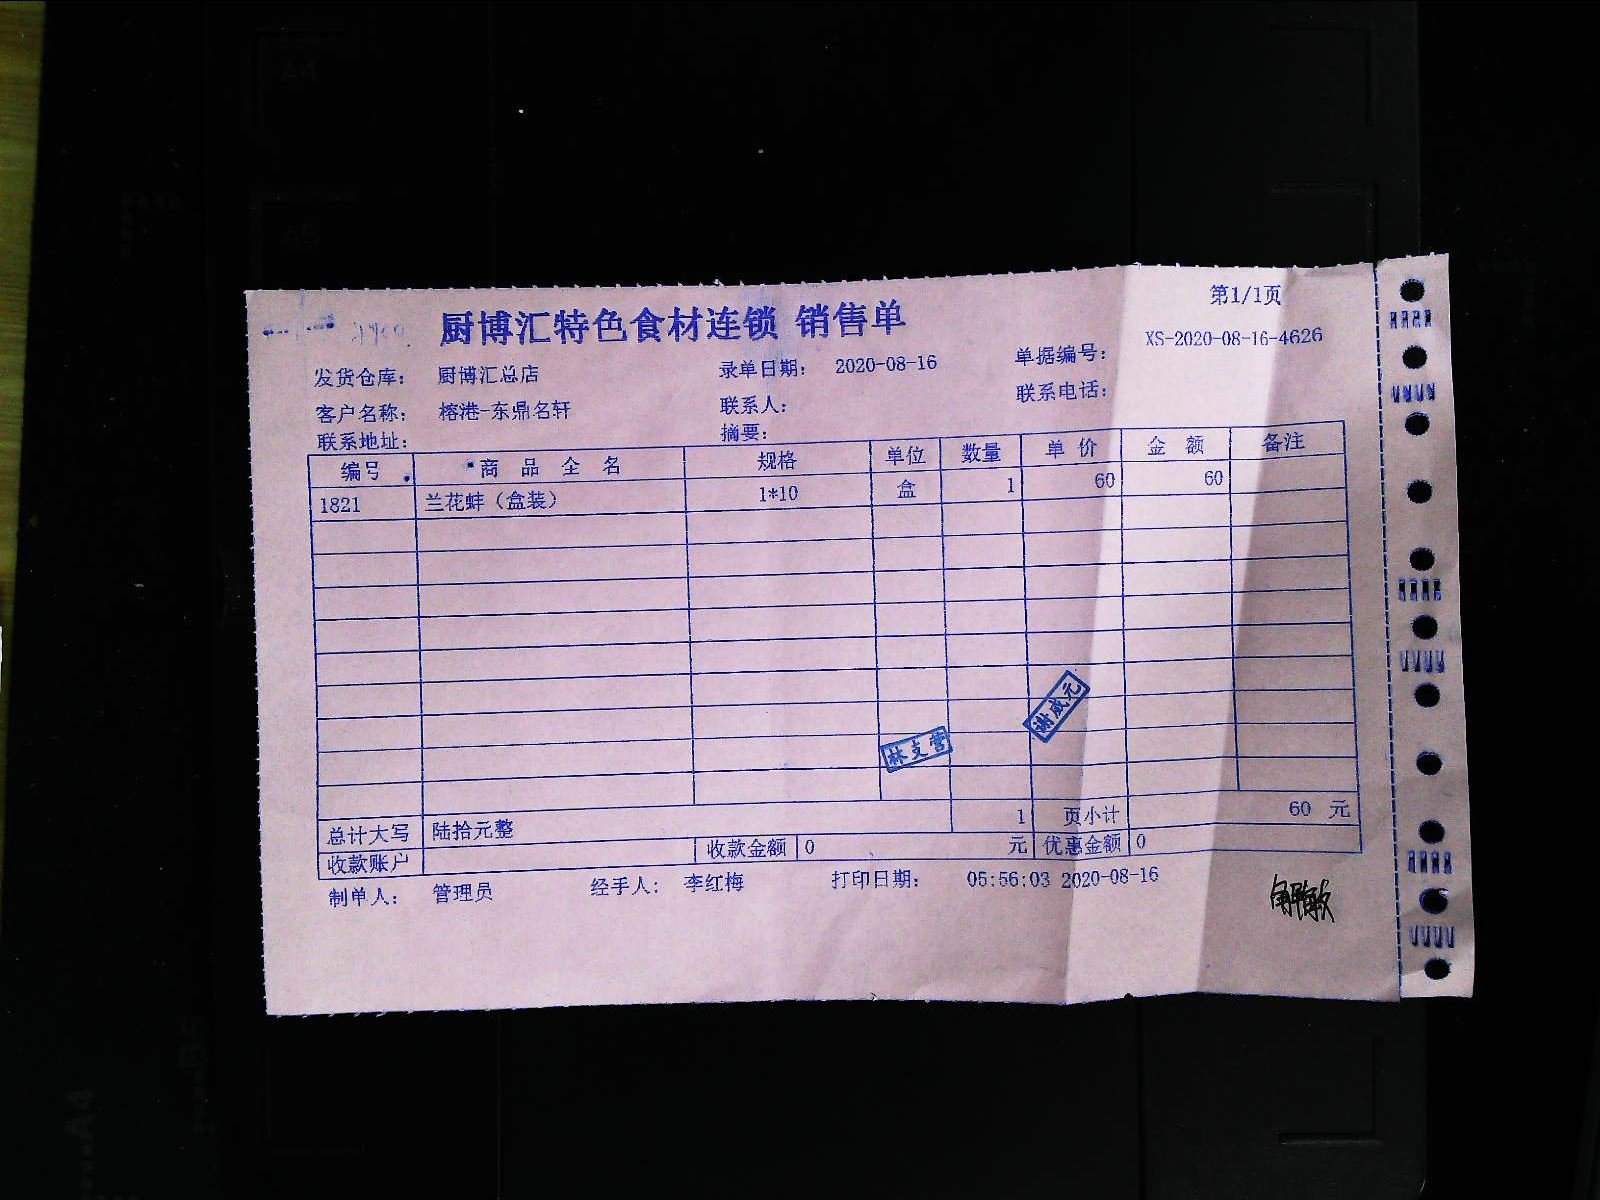 第1/1页
厨博汇特色食材连锁 销售单
发货仓库： 厨博汇总店 录单日期： 2020-08-16 单据编号： XS-2020-08-16-4626
客户名称： 榕港-东鼎名轩 联系人： 联系电话：
联系地址： 摘要：
编号 商品全名 规格 单位 数量 单价 金额 备注
1821 兰花蚌（盒装） 1*10 盒 1 60 60
谢成元
林支营
总计大写 陆拾元整 1 页小计 60 元
收款账户 收款金额 0 元 优惠金额 0
制单人： 管理员 经手人： 李红梅 打印日期： 05:56:03 2020-08-16